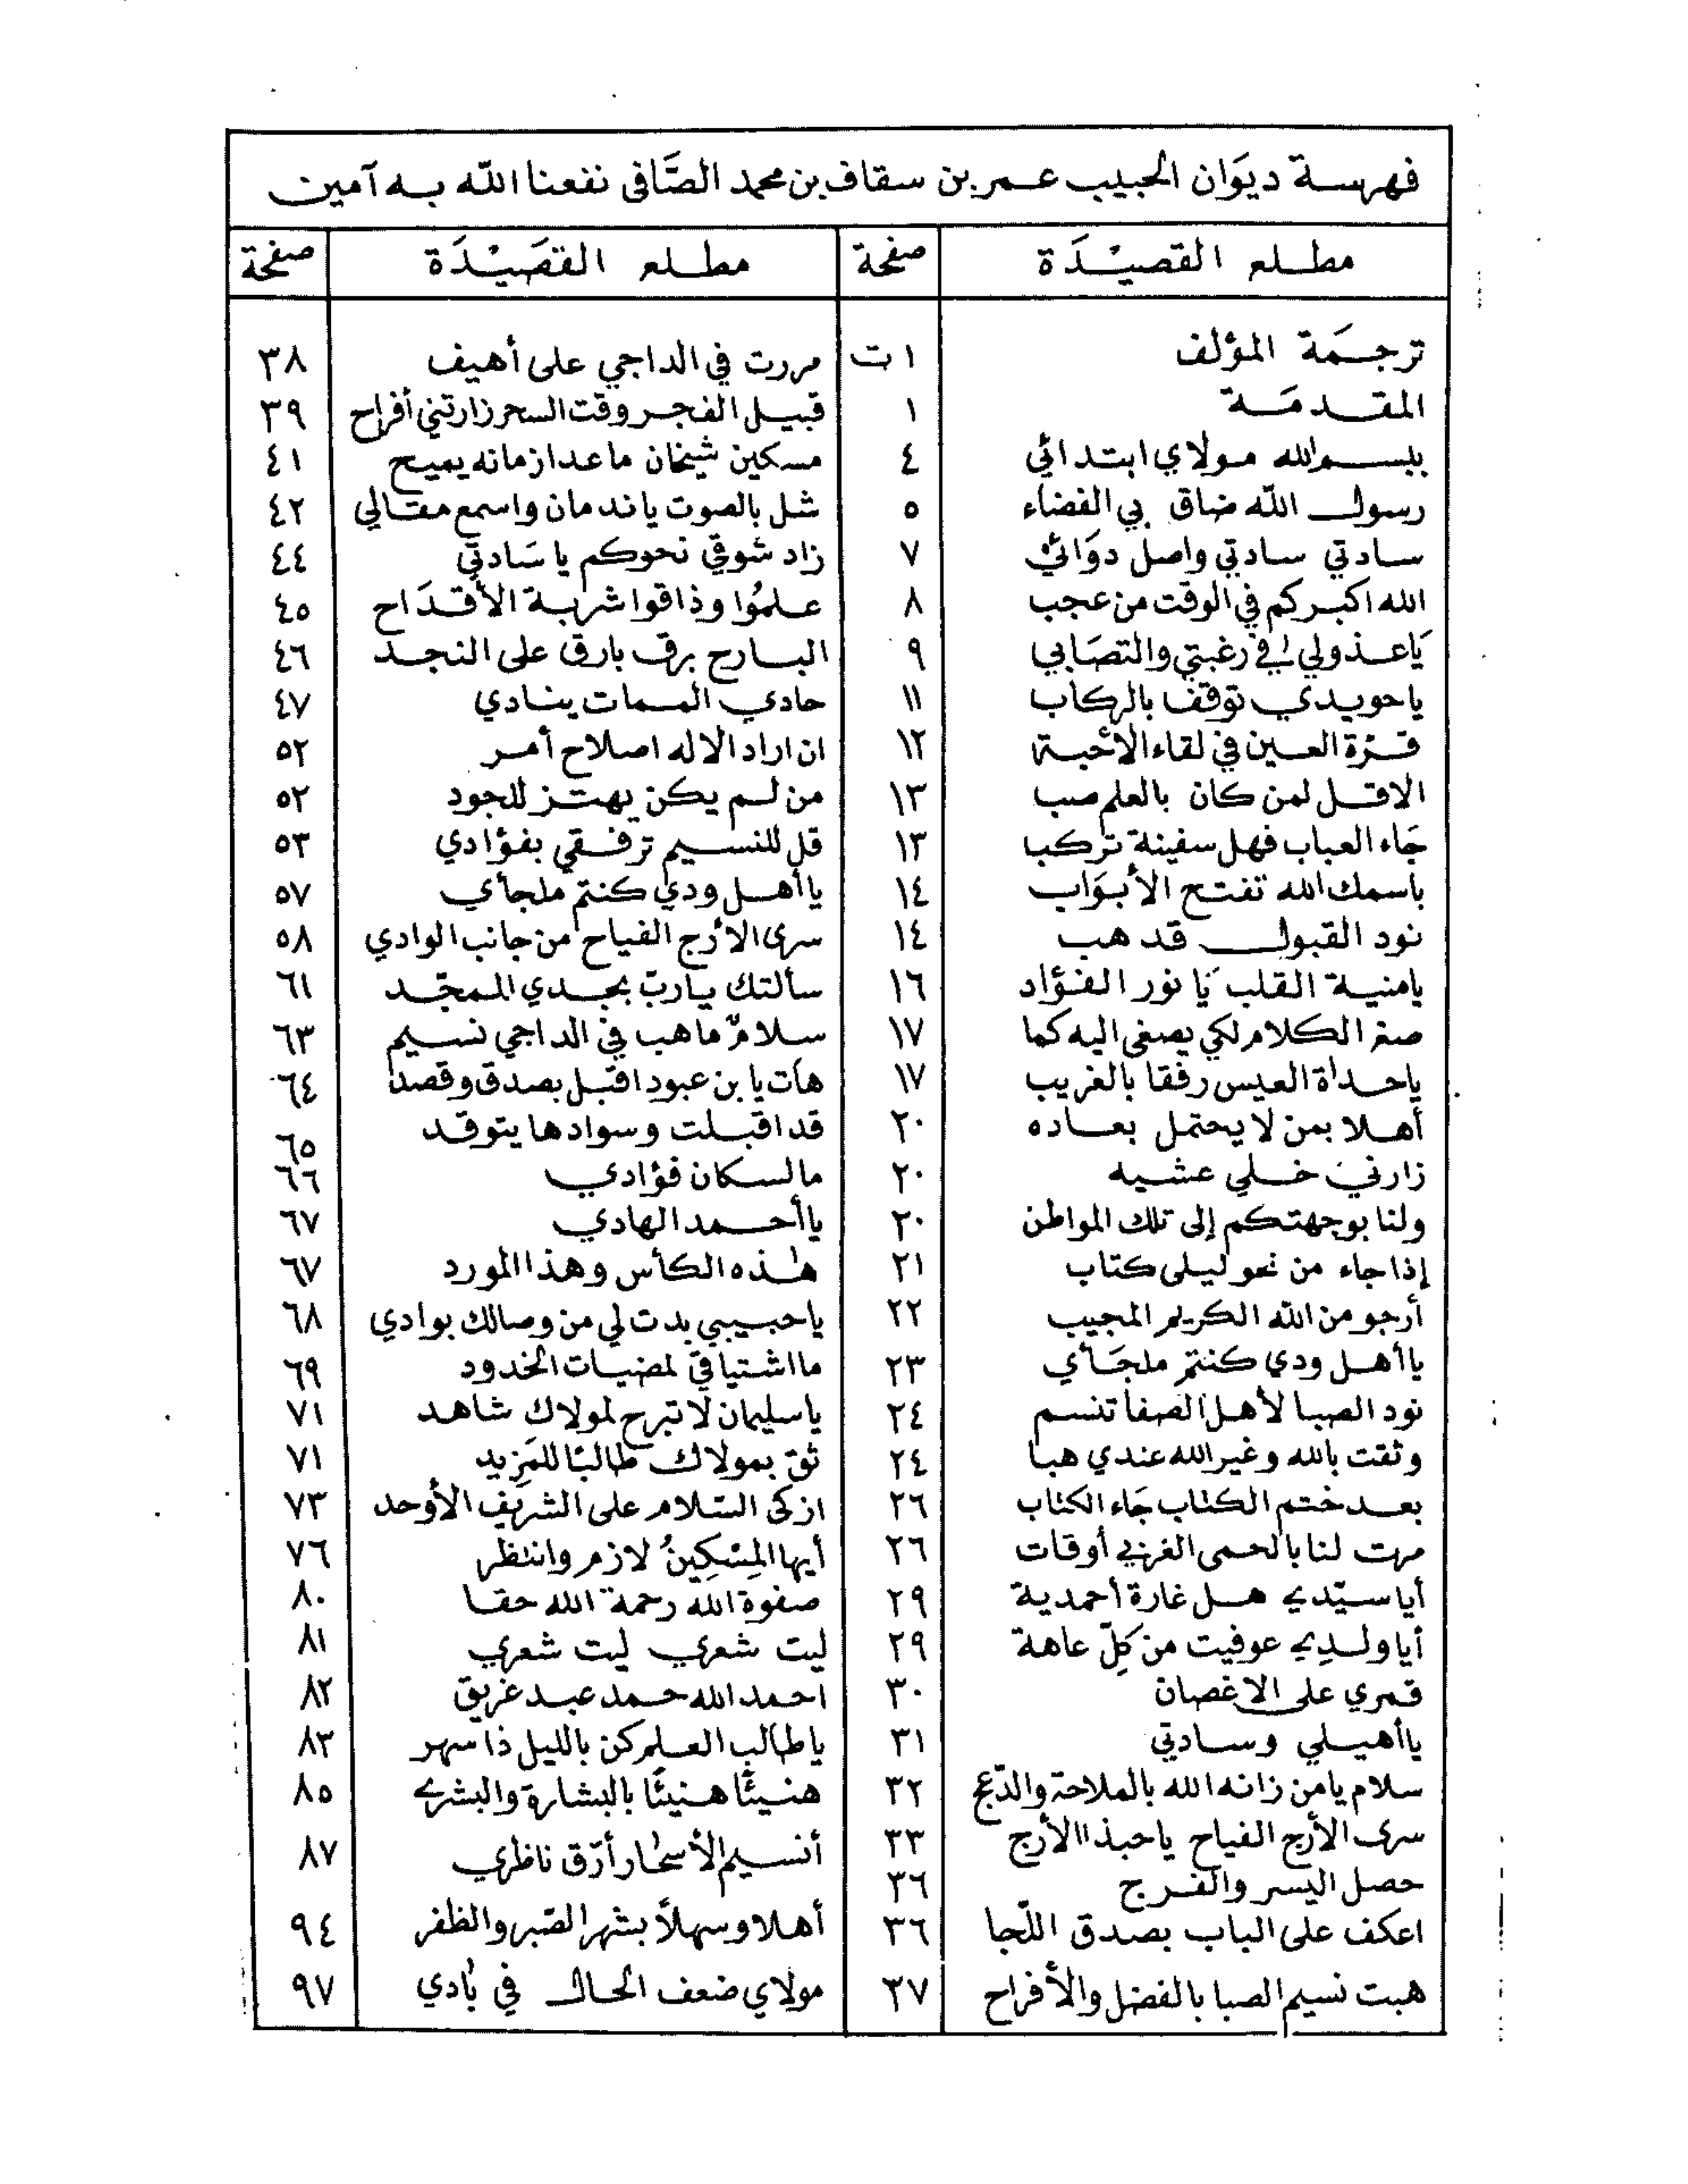 فهرسة ديوَان الحبيب عمر بن سقاف بن محمد الصَّافى نفعنا اللّه به آمين
مطلع القصيْدَة صفحة مطلع القصَيْدَة صفحة
ترجَمة المؤلف ١ ت مررت في الداجي على أهيف ٣٨
المقدمَة ١ قبيل الفجر وقت السحر زارتني أفراح ٣٩
ببسم الله مولاي ابتدائي ٤ مسكين شيخان ماعدا زمانه يميح ٤١
رسول اللّه ضاق بي الفضاء ٥ شل بالصوت ياندمان واسمع مقالي ٤٢
سادتي سادتي واصل دوَائي ٧ زاد شوقي نحوكم يا سَادتي ٤٤
الله اكبر كم في الوقت من عجب ٨ علمُوا وذاقوا شربة الأقدَاح ٤٥
يَاعذولي في رغبتي والتصَابي ٩ البارح برق بارق على النجد ٤٦
ياحويدي توقف بالركاب ١١ حادي الممات ينادي ٤٧
قرة العين في لقاء الأحبة ١٢ ان اراد الاله اصلاح أمر ٥٢
الاقل لمن كان بالعلم صب ١٣ من لم يكن يهتز للجود ٥٢
جَاء العباب فهل سفينة تركب ١٣ قل للنسيم ترفقي بفؤادي ٥٣
باسمك الله تفتح الأبوَاب ١٤ يا أهل ودي كنتم ملجأي ٥٧
نود القبول قد هب ١٤ سرى الأرج الفياح من جانب الوادي ٥٨
يامنية القلب يَا نور الفؤاد ١٦ سألتك يارب بجدي الممجّد ٦١
صغر الكلام لكي يصغى اليه كما ١٧ سلامٌ ماهب في الداجي نسيم ٦٣
ياحداة العيس رفقا بالغريب ١٧ هات يا بن عبود اقبل بصدق وقصد ٦٤
أهلا بمن لا يحتمل بعاده ٢٠ قد اقبلت وسوادها يتوقد ٦٥
زارني خلي عشيه ٢٠ مالسكان فؤادي ٦٦
ولنا بوجهتكم إلى تلك المواطن ٢٠ يا أحمد الهادي ٦٧
إذا جاء من نحو ليلى كتاب ٢١ هٰذه الكأس وهذا المورد ٦٧
أرجو من اللّه الكريم المجيب ٢٢ ياحبيبي بدت لي من وصالك بوادي ٦٨
يا أهل ودي كنتم ملجَأي ٢٣ ما اشتياقي لمضيات الخدود ٦٩
نود الصبا لأهل الصفا تنسم ٢٤ ياسليمان لا تبرح لمولاك شاهد ٧١
وثقت بالله وغير الله عندي هبا ٢٤ ثق بمولاك طالبًا للمَزيد ٧١
بعد ختم الكتاب جَاء الكتاب ٢٦ ازكى السّلام على الشريف الأوحد ٧٣
مرت لنا بالحمى الغربي أوقات ٢٦ أيها المِسْكِينُ لازم وانتظر ٧٦
أيا سيّدي هل غارة أحمدية ٢٩ صفوة الله رحمة الله حقا ٨٠
أيا ولدي عوفيت من كلّ عاهة ٢٩ ليت شعري ليت شعري ٨١
قمري على الاغصان ٣٠ احمد الله حمد عبد غريق ٨٢
يا أهيلي وسادتي ٣١ ياطالب العلم كن بالليل ذا سهر ٨٣
سلام يامن زانه الله بالملاحة والدّعج ٣٢ هنيئًا هنيئًا بالبشارة والبشرى ٨٥
سرى الأرج الفياح ياحبذا الأرج ٣٣ أنسيم الأسحار أرّق ناظري ٨٧
حصل اليسر والفرج ٣٦
اعكف على الباب بصدق اللّجا ٣٦ أهلا وسهلاً بشهر الصّبر والظفر ٩٤
هبت نسيم الصبا بالفضل والأفراح ٣٧ مولاي ضعف الحال في بادي ٩٧